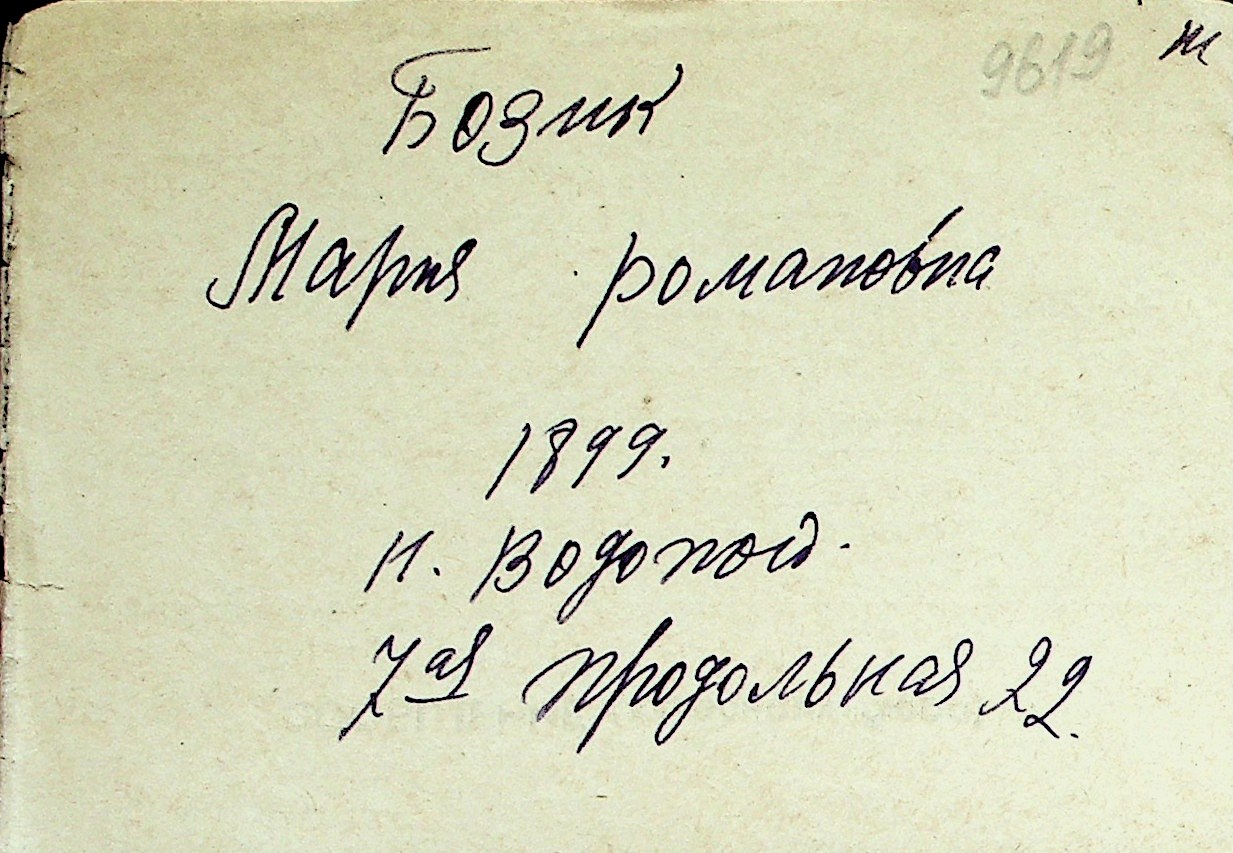 9619 ж
Бозик
Мария романовна
1899.
н. Водопой.
7ая продольная 22.